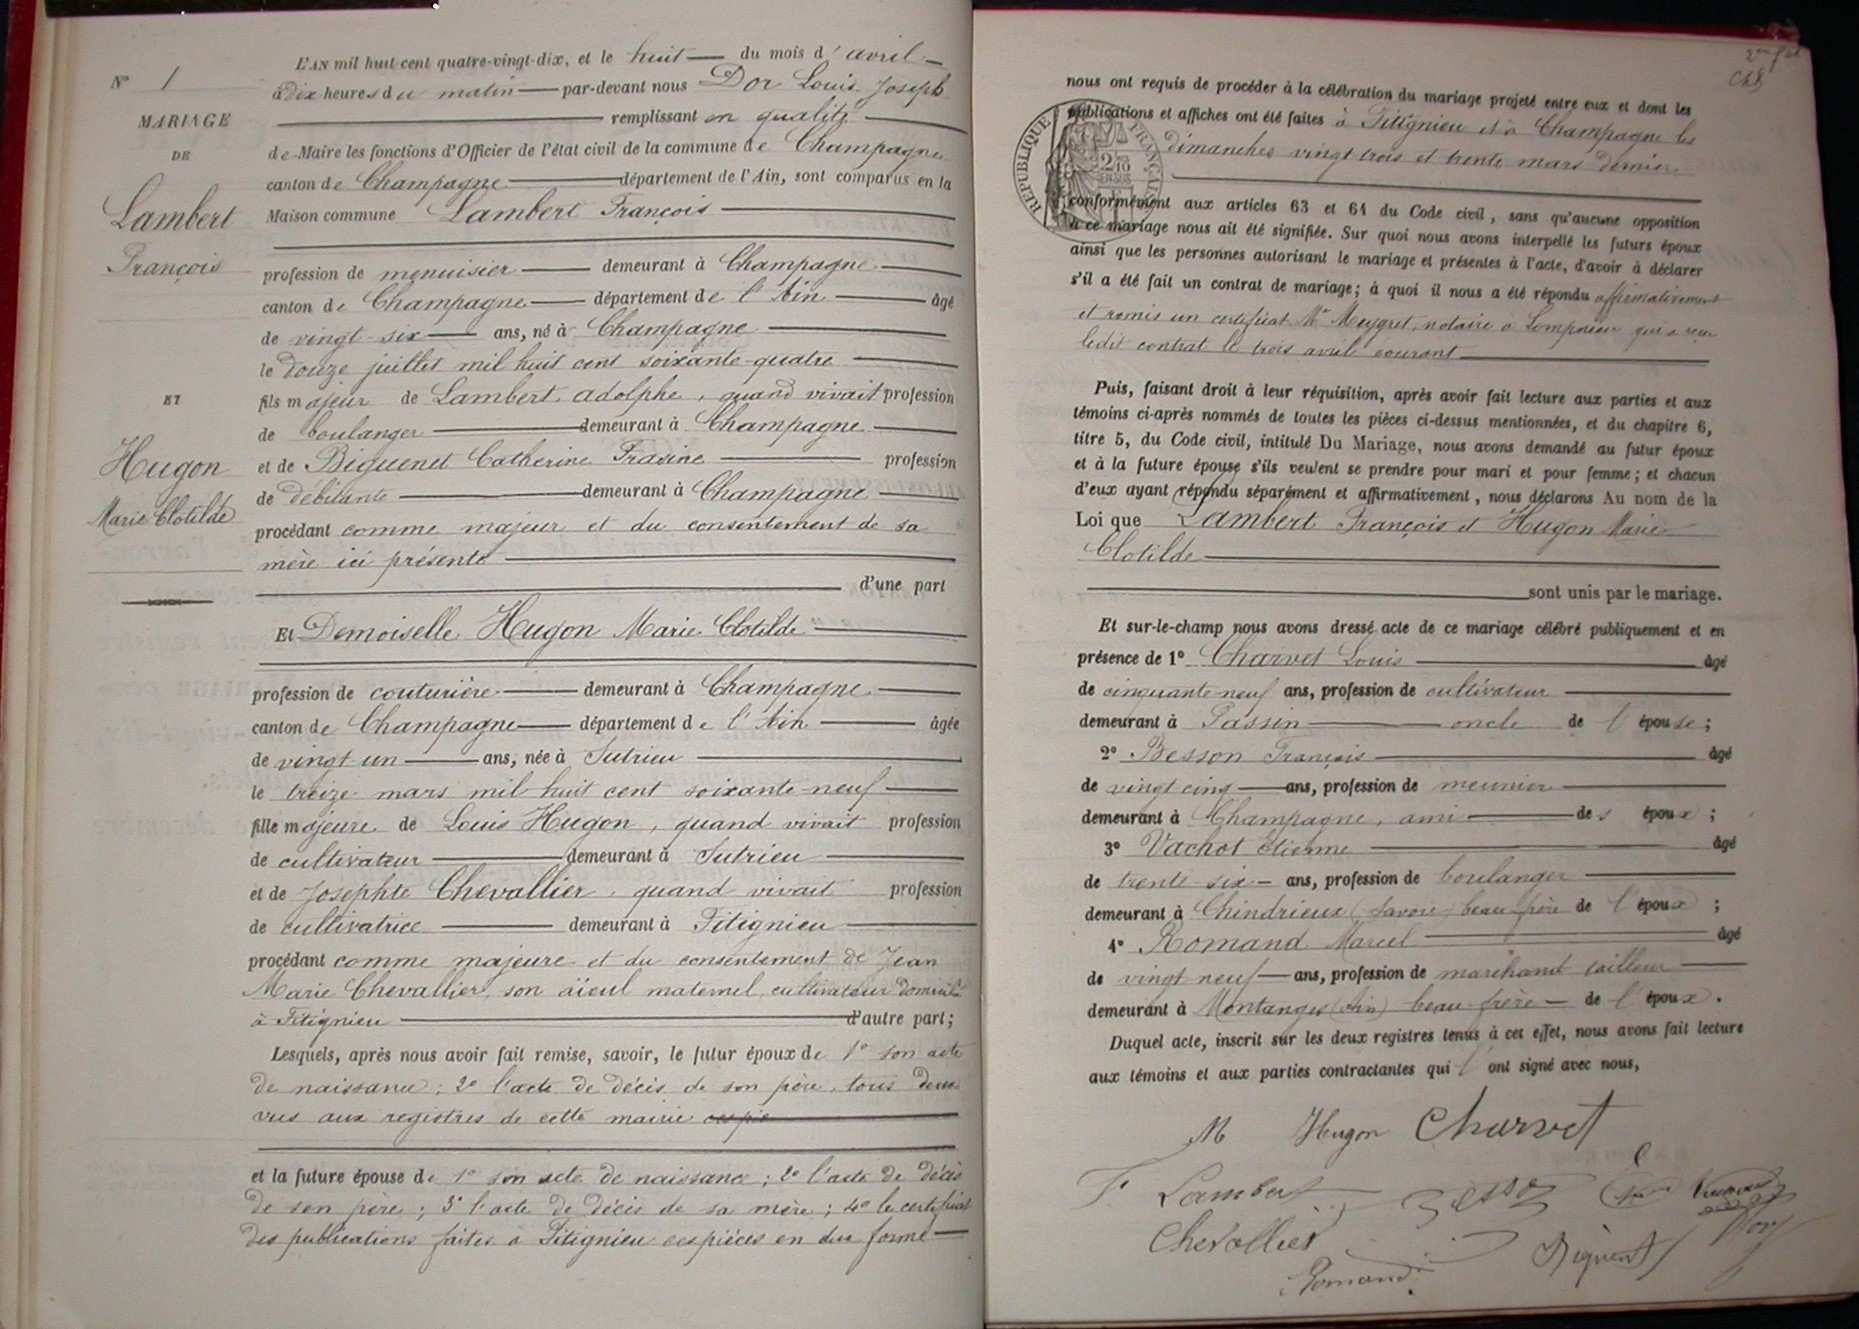 N° 1
MARIAGE
DE
Lambert
François
ET
Hugon
Marie Clotilde
L'AN mil huit cent quatre-vingt-dix, et le huit du mois d'avril
à dix heures du matin par-devant nous Dor Louis Joseph
remplissant en qualité
de Maire les fonctions d'Officier de l'état civil de la commune de Champagne
canton de Champagne département de l'Ain, sont comparus en la
Maison commune Lambert François
profession de menuisier demeurant à Champagne
canton de Champagne département de l'Ain âgé
de vingt-six ans, né à Champagne
le douze juillet mil huit cent soixante-quatre
fils majeur de Lambert adolphe, quand vivait profession
de boulanger demeurant à Champagne
et de Biguenet Catherine profession
de débitante demeurant à Champagne
procédant comme majeur et du consentement de sa
mère ici présente
d'une part
Et Demoiselle Hugon Marie Clotilde
profession de couturière demeurant à Champagne
canton de Champagne département de l'Ain âgée
de vingt-un ans, née à Sutrieu
le treize mars mil huit cent soixante-neuf
fille majeure de Louis Hugon, quand vivait profession
de cultivateur demeurant à Sutrieu
et de Josephte Chevallier, quand vivait profession
de cultivatrice demeurant à Fitignieu
procédant comme majeure et du consentement de Jean
Marie Chevallier, son aïeul maternel, cultivateur domicilié
à Fitignieu d'autre part;
Lesquels, après nous avoir fait remise, savoir, le futur époux de 1° son acte
de naissance; 2° l'acte de décès de son père, tous deux
vus aux registres de cette mairie
et la future épouse de 1° son acte de naissance; 2° l'acte de décès
de son père; 3° l'acte de décès de sa mère; 4° le certificat
des publications faites à Fitignieu ces pièces en due forme
2me
C18
nous ont requis de procéder à la célébration du mariage projeté entre eux et dont les
publications et affiches ont été faites à Fitignieu et à Champagne les
dimanches vingt trois et trente mars dernier
RÉPUBLIQUE FRANÇAISE
conformément aux articles 63 et 64 du Code civil, sans qu'aucune opposition
à ce mariage nous ait été signifiée. Sur quoi nous avons interpellé les futurs époux
ainsi que les personnes autorisant le mariage et présentes à l'acte, d'avoir à déclarer
s'il a été fait un contrat de mariage; à quoi il nous a été répondu affirmativement
et remis un certificat Me Meygret, notaire à Lompnieu qui a reçu
ledit contrat le trois avril courant
Puis, faisant droit à leur réquisition, après avoir fait lecture aux parties et aux
témoins ci-après nommés de toutes les pièces ci-dessus mentionnées, et du chapitre 6,
titre 5, du Code civil, intitulé Du Mariage, nous avons demandé au futur époux
et à la future épouse s'ils veulent se prendre pour mari et pour femme; et chacun
d'eux ayant répondu séparément et affirmativement, nous déclarons Au nom de la
Loi que Lambert François et Hugon Marie
Clotilde
sont unis par le mariage.
Et sur-le-champ nous avons dressé acte de ce mariage célébré publiquement et en
présence de 1° Charvet Louis âgé
de cinquante neuf ans, profession de cultivateur
demeurant à Passin oncle de l'épouse;
2° Besson François âgé
de vingt cinq ans, profession de meunier
demeurant à Champagne, ami des époux;
3° Vachot Etienne âgé
de trente-six ans, profession de boulanger
demeurant à Chindrieux (Savoie) beau-père de l'époux;
4° Romand Marcel âgé
de vingt neuf ans, profession de marchand tailleur
demeurant à Montanges (Ain) beau-frère de l'époux.
Duquel acte, inscrit sur les deux registres tenus à cet effet, nous avons fait lecture
aux témoins et aux parties contractantes qui l'ont signé avec nous,
M Hugon Charvet
F. Lambert Besson
Chevollier
Romand
Dor